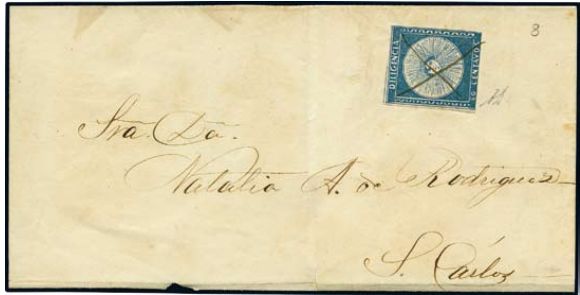 8
DILIGENCIA
60 CENTAVOS
Sra. Da.
Natalia A. de Rodriguez
S. Cárlos